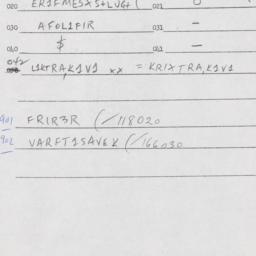 020 ER1FMESXS+LVG+( 021
030 AFOL1FIR 031 –
040 $ 041 –
042 L1KTRA,K1V1 xx = KRIXTRA,K1V1
901 FRIR3R (/118020
902 VARFT1SAVEK (/166030